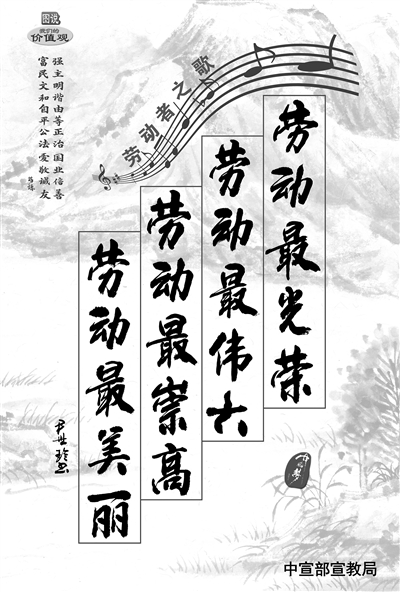 图说
我们的
价值观
富强
民主
文明
和谐
自由
平等
公正
法治
爱国
敬业
诚信
友善
劳动者之歌
劳动最光荣
劳动最伟大
劳动最崇高
劳动最美丽
中宣部宣教局